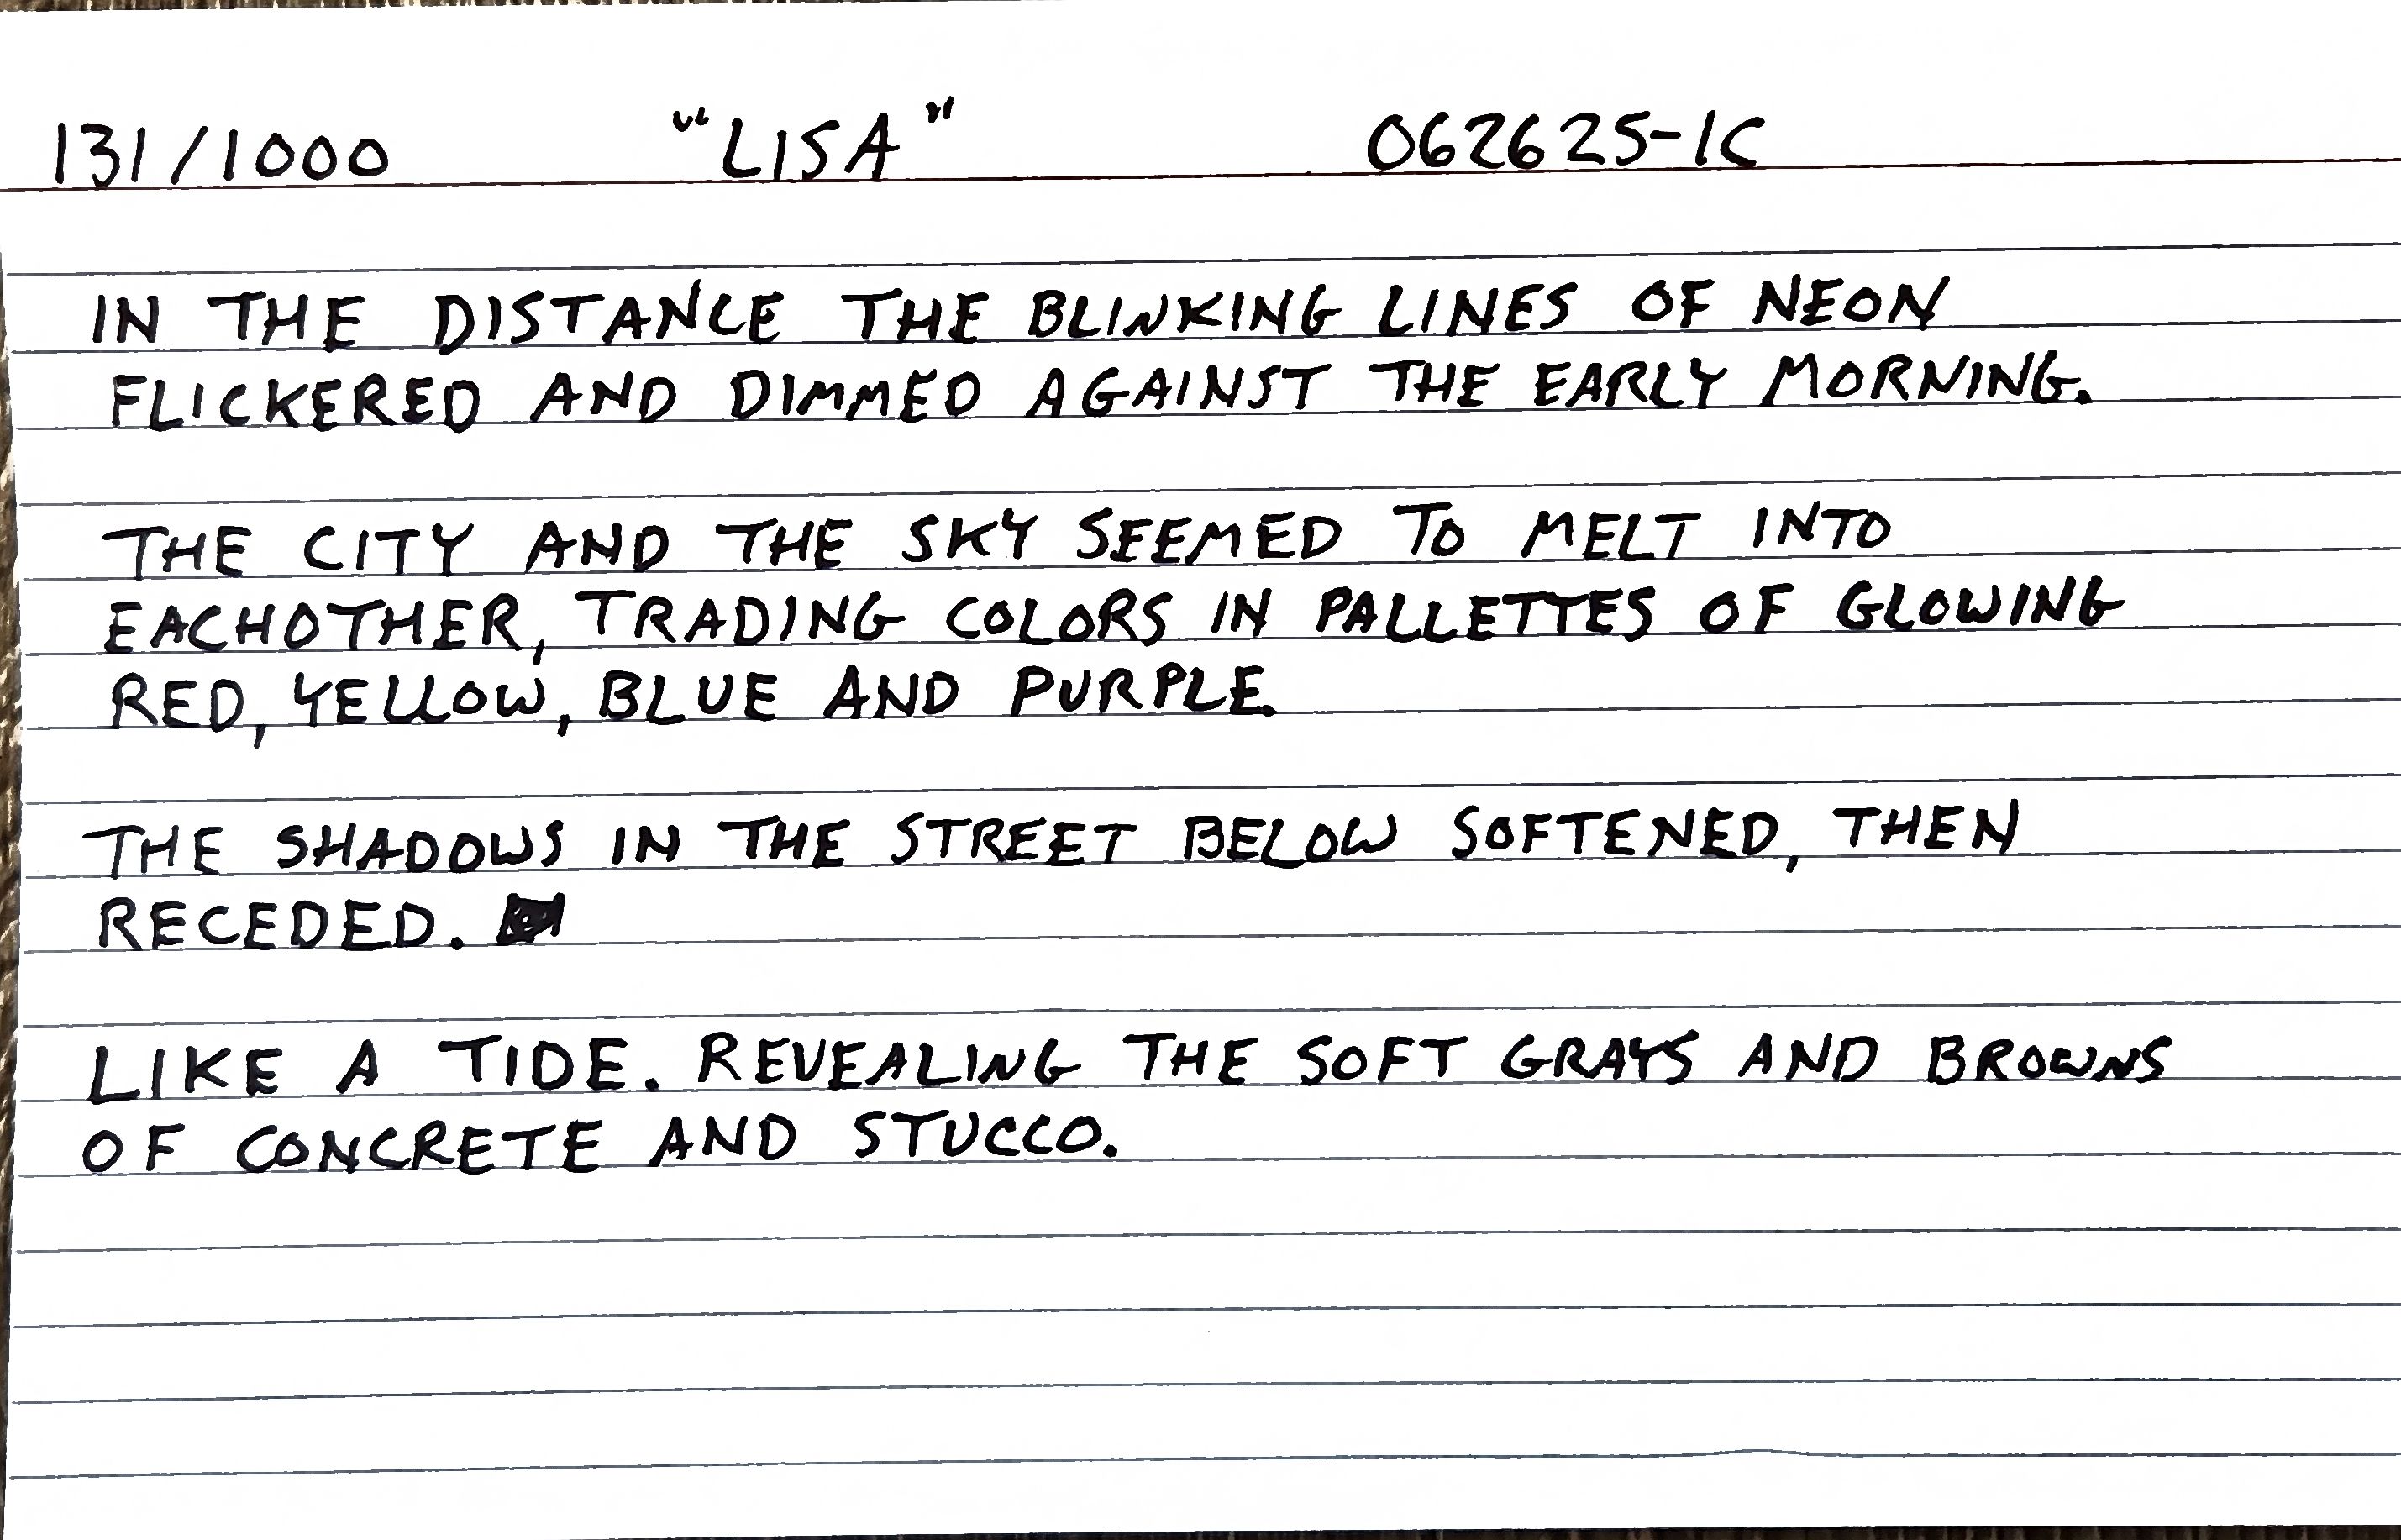 131/1000 "LISA" 062625-1C
IN THE DISTANCE THE BLINKING LINES OF NEON
FLICKERED AND DIMMED AGAINST THE EARLY MORNING.
THE CITY AND THE SKY SEEMED TO MELT INTO
EACHOTHER, TRADING COLORS IN PALLETTES OF GLOWING
RED, YELLOW, BLUE AND PURPLE.
THE SHADOWS IN THE STREET BELOW SOFTENED, THEN
RECEDED.
LIKE A TIDE. REVEALING THE SOFT GRAYS AND BROWNS
OF CONCRETE AND STUCCO.